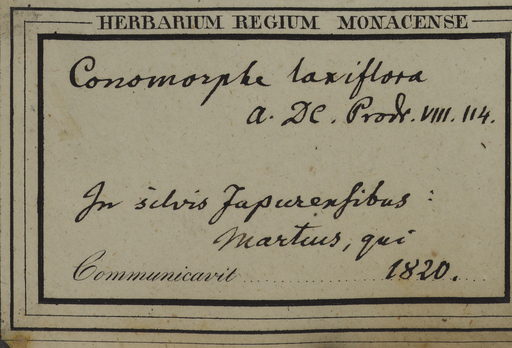 HERBARIUM REGIUM MONACENSE
Conomorphe laxiflora
A. DC. Prodr. VIII. 114.
In silvis Japurensibus:
Martius, qui
Communicavit 1820.